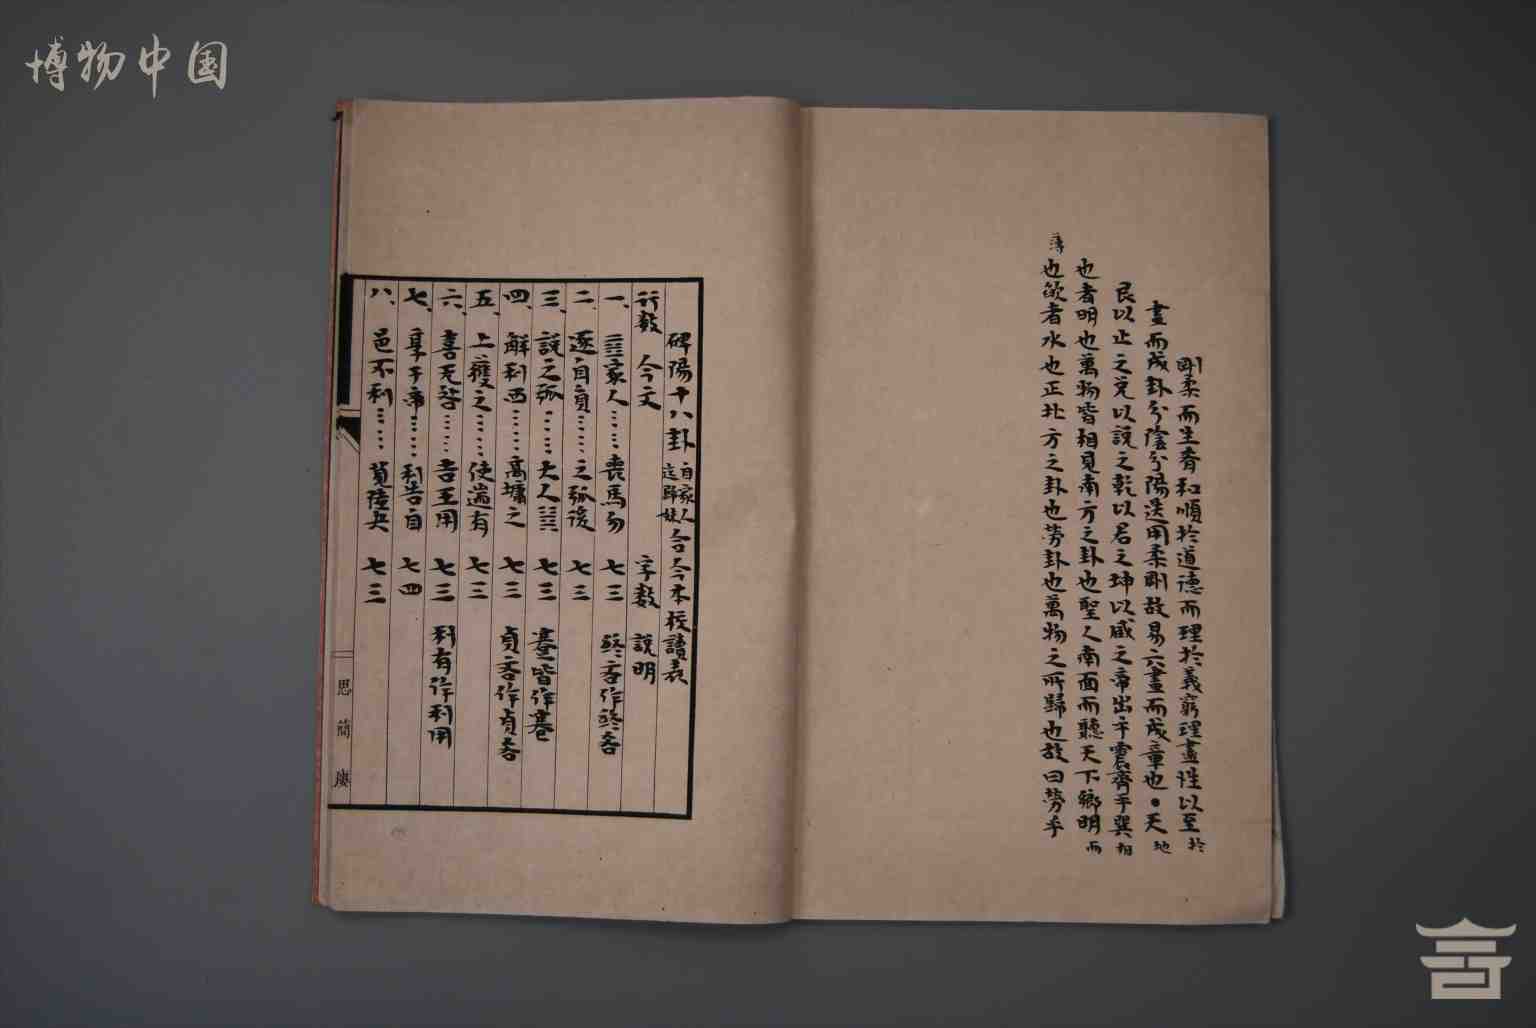 博物中国
剛柔而生肴和順於道德而理於義窮理盡性以至於
畫而成卦分陰分陽迭用柔剛故易六畫而成章也•天地
艮以止之兌以說之乾以君之坤以臧之帝出乎震齊乎巽相
也者明也萬物皆相見南方之卦也聖人南面而聽天下鄉明而
薄也欿者水也正北方之卦也勞卦也萬物之所歸也故曰勞乎
碑陽十八卦自家人迄歸妹合今本校讀表
行數 今文 字數 說明
一、䷤家人……喪馬勿 七三 終吝作終吝
二、遂自貞……之弧後 七三
三、說之弧……大人䷦ 七三 蹇皆作蹇
四、解利西……高墉之 七三 貞吝作貞吝
五、上獲之……使遄有 七三
六、喜无咎……吉王用 七三 利有作利用
七、享于帝……利告自 七四
八、邑不利……莧陸夬 七三
思簡廔